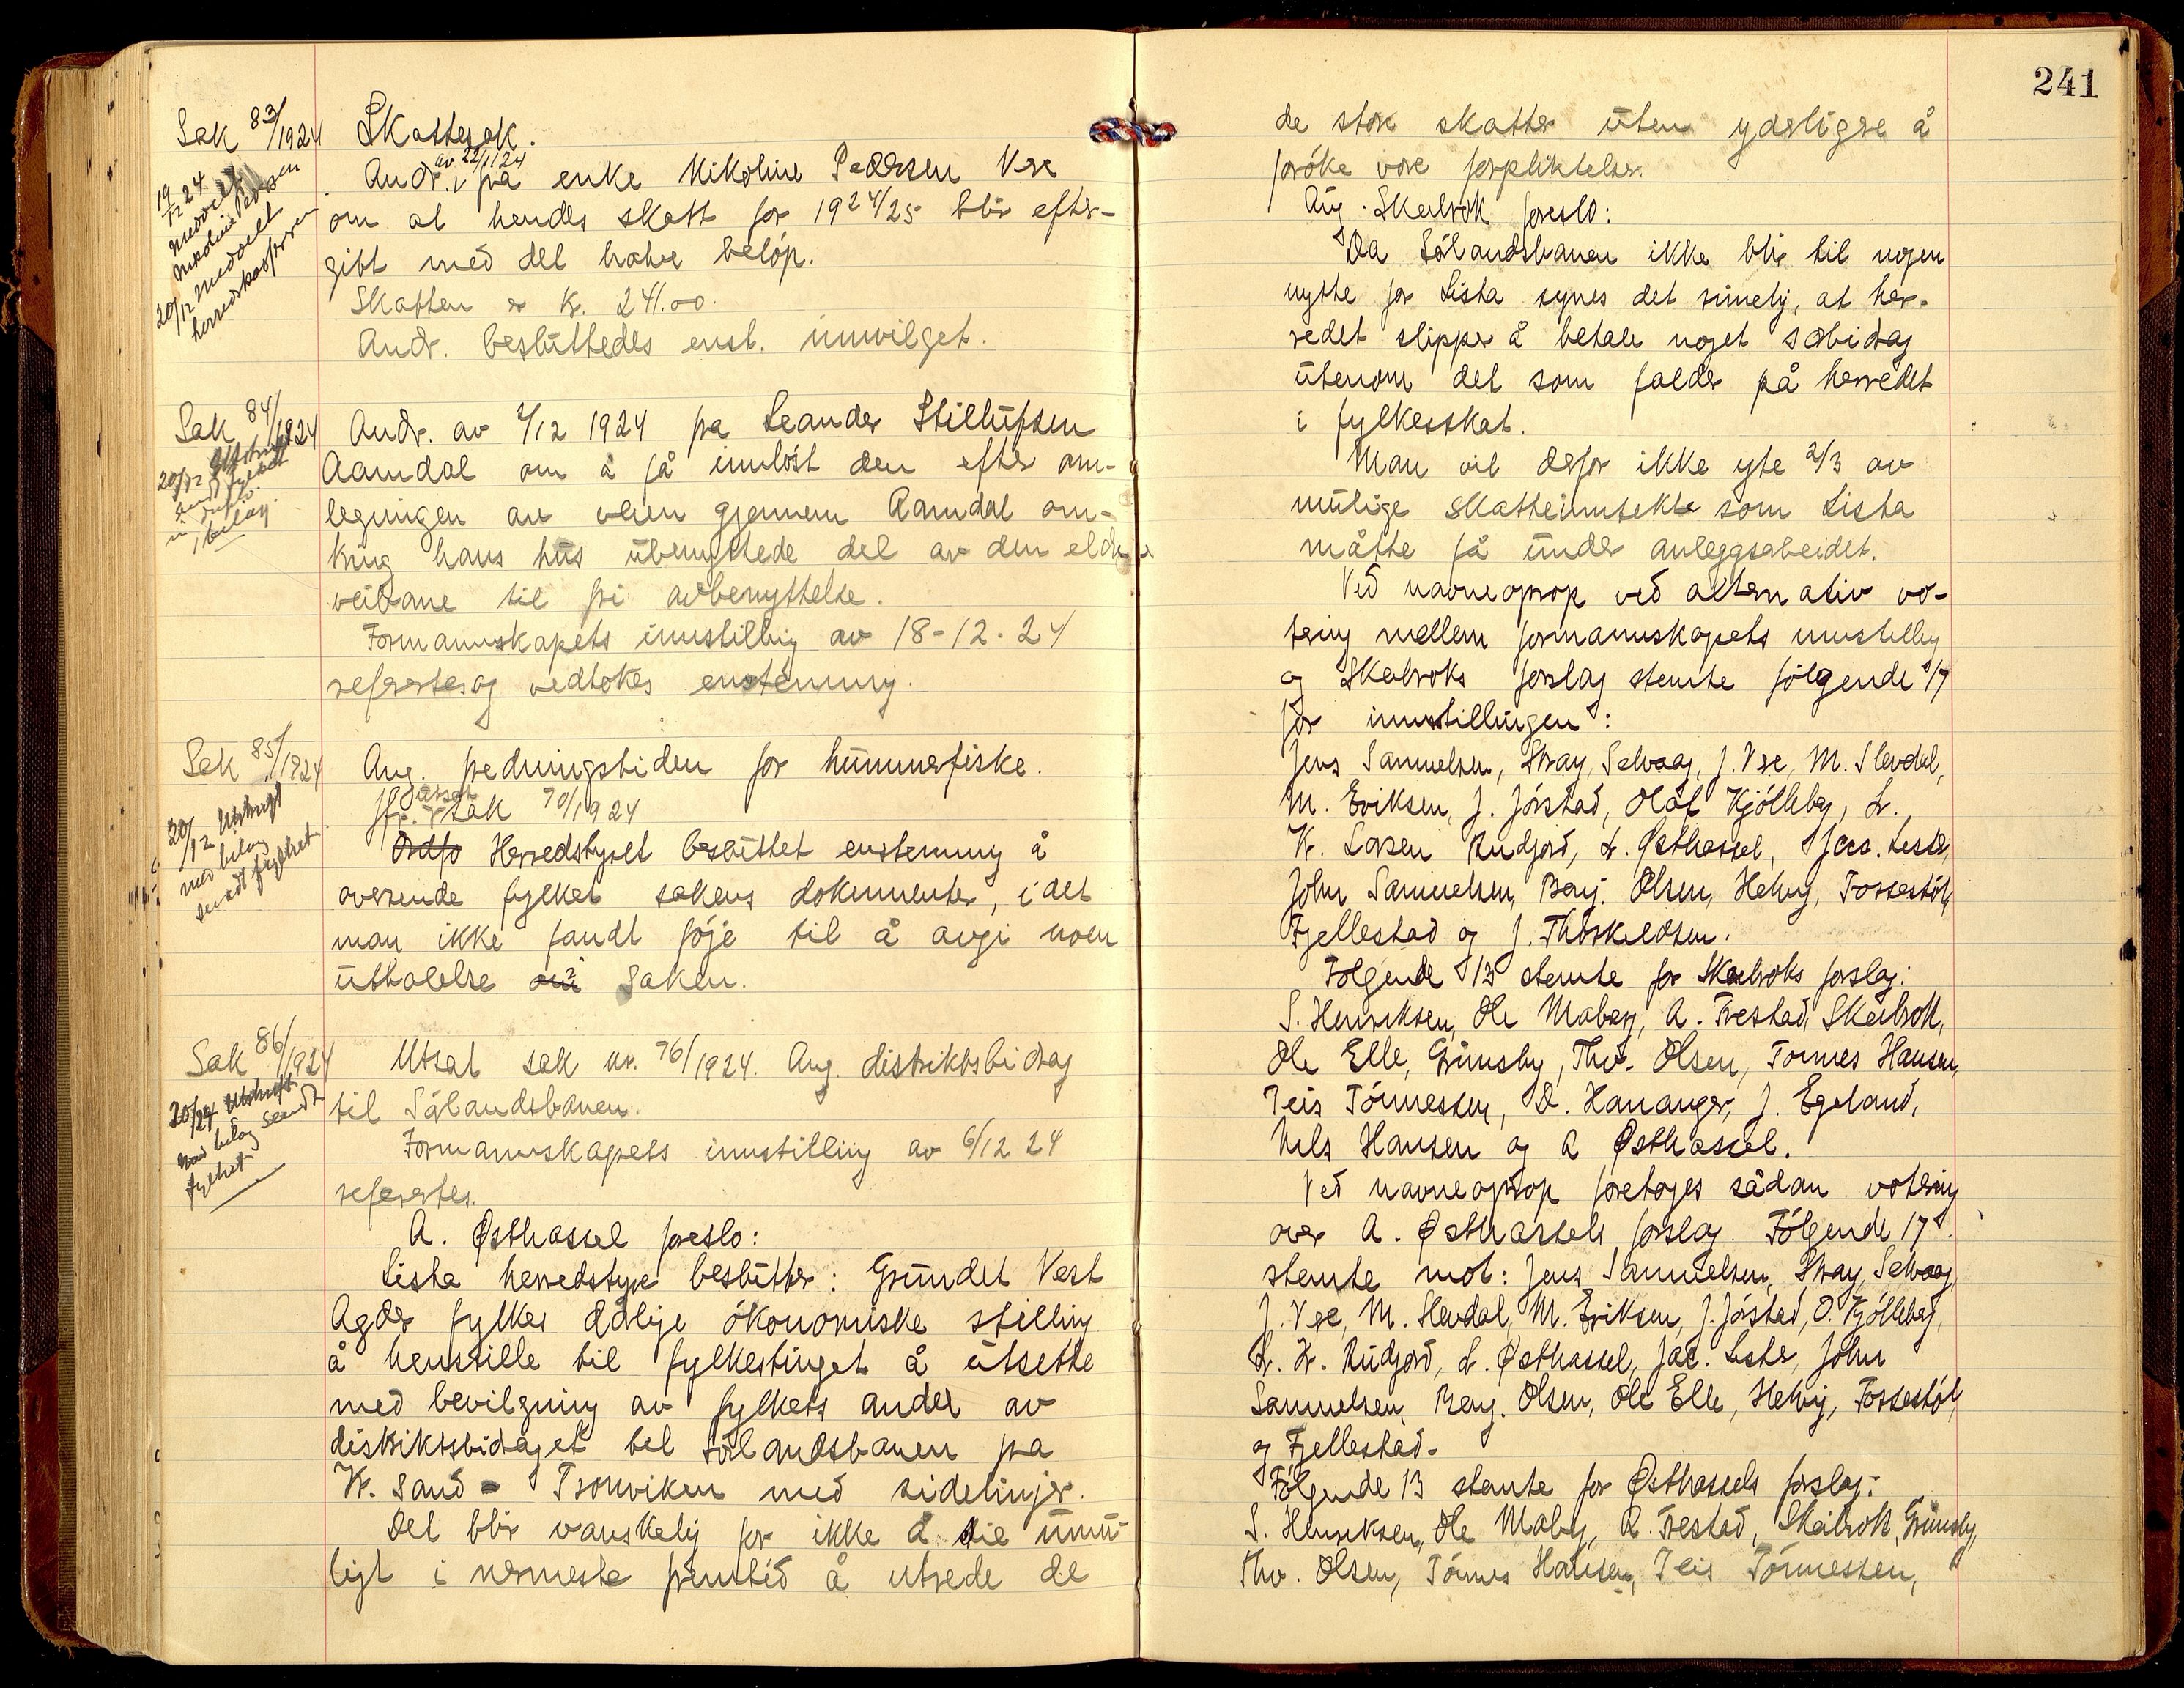 Sak 83/1924
19/12 24
meddelt
Nikoline Pedersen
20/12 meddelt
herredskasseren
Skattesak.
Andr. av 22/11 24 fra enke Nikoline Pedersen Vere
om at hendes skatt for 1924/25 blir efter-
gibt med det halve beløp.
Skatten er kr. 241.00.
Andr. besluttedes enst. innvilget.
Sak 84/1924
20/12 Utskrift
sendt fylket
m/ bilag
Andr. av 2/12 1924 fra Leander Stillufsen
Aamdal om å få innløst den efter om-
legningen av veien gjennem Aamdal om-
kring hans hus ubenyttede del av den eldre
veibane til fri avbenyttelse.
Formannskapets innstilling av 18-12-24
refertes og vedtokes enstemmig.
Sak 85/1924
20/12 Utskrift
med bilag
sendt fylket
Ang. fredningstiden for hummerfiske.
Jfr. utsat sak 70/1924
Ordfo Herredstyret besluttet enstemmig å
oversende fylket sakens dokumenter, idet
man ikke fandt föje til å avgi noen
uttalelse i saken.
Sak 86/1924
20/12 24 Utskrift
med bilag sendt
fylket
Utsat sak nr. 76/1924. Ang. distriktsbidrag
til Sörlandsbanen.
Formannskapets innstilling av 6/12 24
refertes.
A. Østhassel foreslo:
Lista herredstyre beslutter: Grundet Vest
Agder fylkes dårlige ökonomiske stilling
å henstille til fylkestinget å utsette
med bevilgning av fylkets andel av
distriktsbidraget til sörlandsbanen fra
Kr. sand - Tronviken med sidelinjer.
Det blir vanskelig for ikke å sie umu-
ligt i nermeste fremtid å utrede de
241
de store skatter uten yderligere å
forøke vore forpliktelser.
Aug. Skeibrok foreslo:
Da Sörlandsbanen ikke blir til nogen
nytte for Lista synes det rimelig, at her-
redet slipper å betale noget særbidrag
utenom det som falder på herredet
i fylkesskat.
Man vil derfor ikke yte 2/3 av
mulige skatteinntekter som Lista
måtte få under anleggsarbeidet.
Ved navneoprop ved alternativ vo-
tering mellem formannskapets innstilling
og Skeibroks forslag stemte følgende 17
for innstillingen:
Jens Samuelsen, Stray, Selvaag, J. Vere, M. Slevdal,
M. Eriksen, J. Jörstad, Olaf Kjölleberg, L.
K. Larsen Rudjord, L. Østhassel, Jac. Lister,
John Samuelsen, Benj. Olsen, Helvig, Fossestöl,
Fjellestad og J. Thorkildsen.
Følgende 13 stemte for Skeibroks forslag:
S. Henriksen, Ole Maberg, A. Frestad, Skeibrok,
Ole Elle, Grimsby, Thv. Olsen, Tönnes Hansen,
Teis Tönnessen, D. Hananger, J. Egeland,
Nels Hansen og A Østhassel.
Ved navneoprop foretoges sådan votering
over A. Østhassels forslag. Følgende 17
stemte mot: Jens Samuelsen, Stray, Selvaag,
J. Vere, M. Slevdal, M. Eriksen, J. Jörstad, O. Kjölleberg,
L. K. Rudjord, L. Østhassel, Jac. Lister, John
Samuelsen, Benj. Olsen, Ole Elle, Helvig, Fossestöl,
og Fjellestad.
Følgende 13 stemte for Østhassels forslag:
S. Henriksen, Ole Maberg, A. Frestad, Skeibrok, Grimsby,
Thv. Olsen, Tönnes Hansen, Teis Tönnessen,